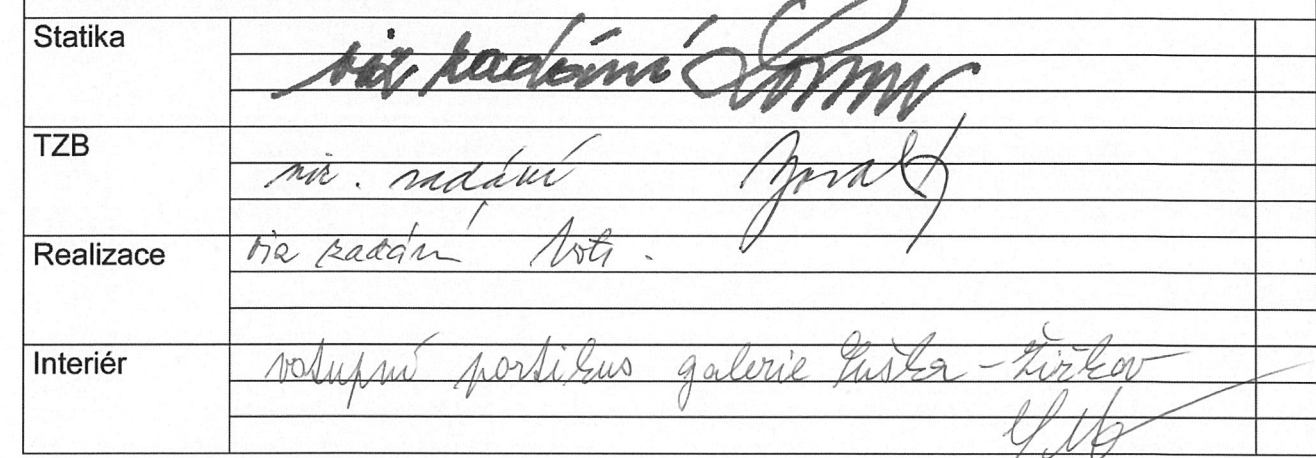 Statika
viz zadání
TZB
viz. zadání
Realizace
viz zadání
Interiér
vstupní portikus galerie - Žižkov